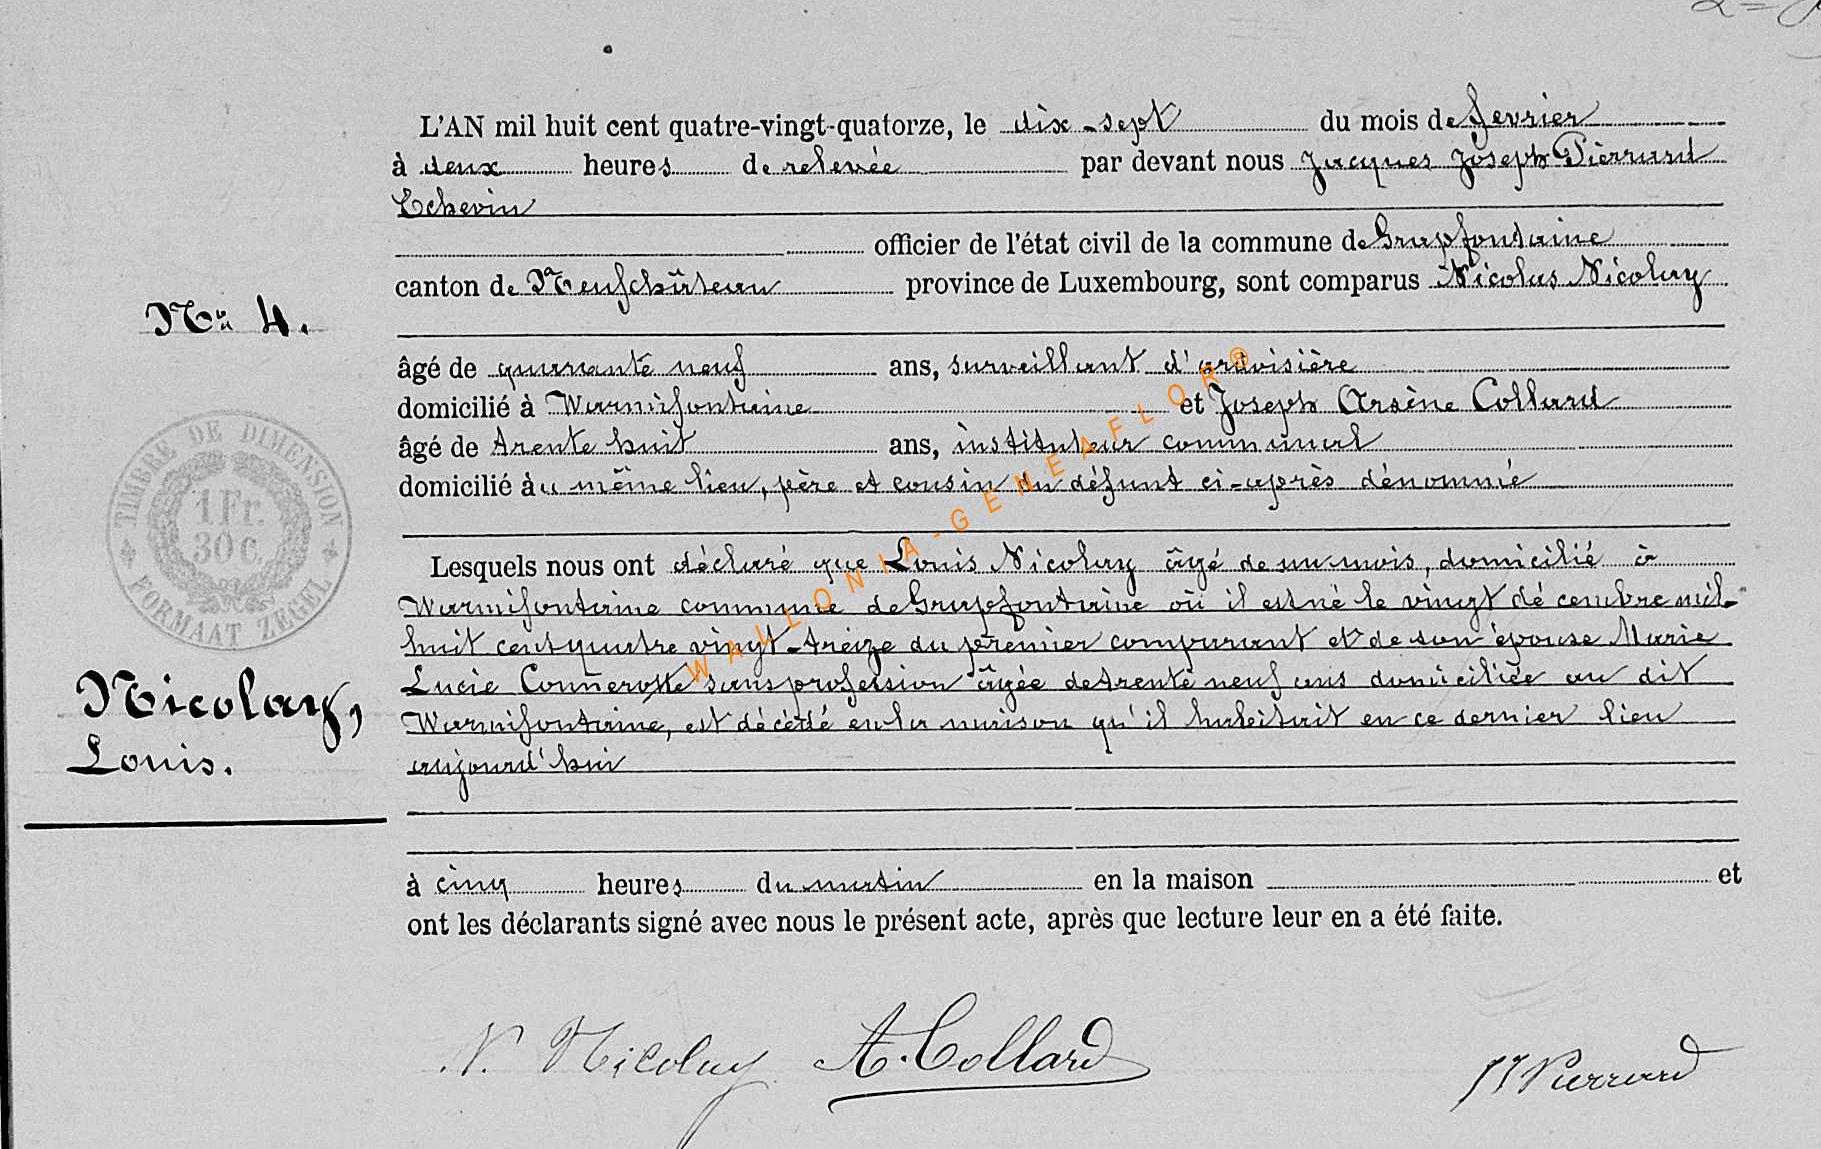 L'AN mil huit cent quatre-vingt-quatorze, le dix-sept du mois de fevrier
à deux heures de relevée par devant nous Jacques Joseph Pierrard
Echevin
officier de l'état civil de la commune de Grapfontaine
canton de Neufchâteau province de Luxembourg, sont comparus Nicolas Nicolay
N° 4.
âgé de quarante neuf ans, surveillant d'ardoisière
domicilié à Warmifontaine et Joseph Arsène Collard
âgé de trente huit ans, instituteur communal
domicilié au même lieu, père et cousin du défunt ci-après dénommé
TIMBRE DE DIMENSION
1 Fr.
30 c.
FORMAAT ZEGEL
Lesquels nous ont déclaré que Louis Nicolay âgé de un mois, domicilié à
Warmifontaine commune de Grapfontaine où il est né le vingt décembre mil
huit cent quatre vingt-treize du premier comparant et de son épouse Marie
Lucie Connerotte sans profession âgée de trente neuf ans domiciliée au dit
Warmifontaine, est décédé en la maison qu'il habitait en ce dernier lieu
aujourd'hui
Nicolay,
Louis.
à cinq heures du matin en la maison et
ont les déclarants signé avec nous le présent acte, après que lecture leur en a été faite.
N. Nicolay A. Collard JJ Pierrard
WALLONIA-GENEAFLOR®